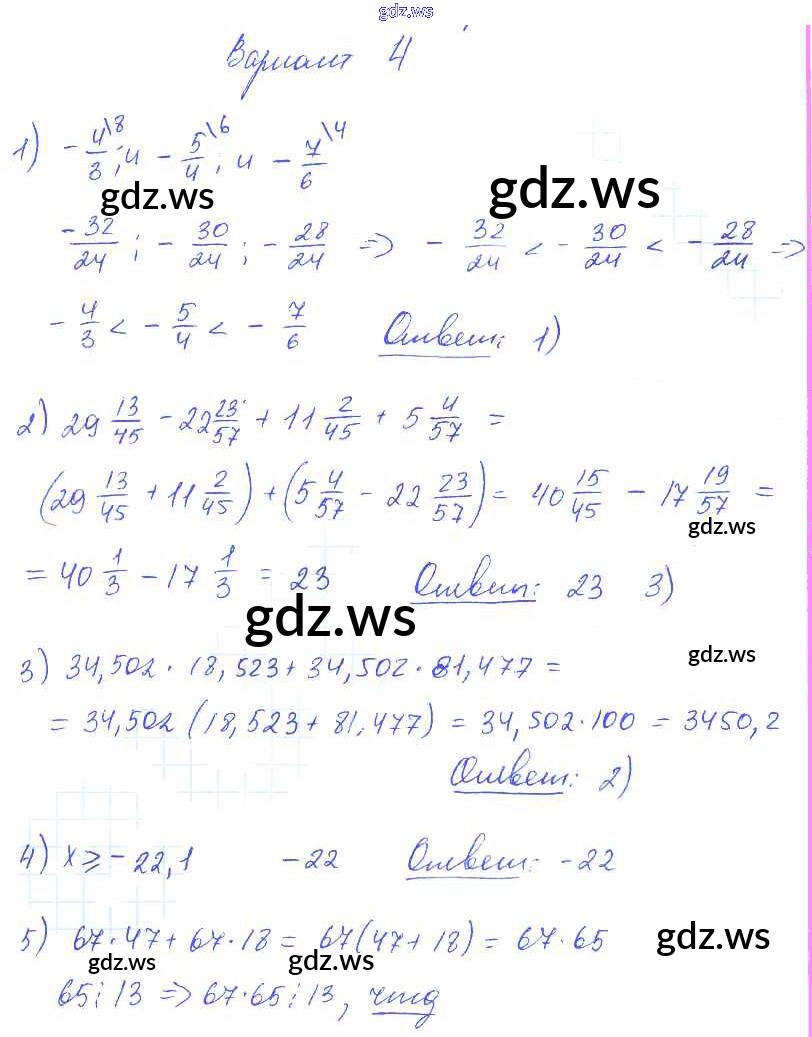 gdz.ws
Вариант 4
1) - 4/3 \8 ; и - 5/4 \6 ; и - 7/6 \4
gdz.ws gdz.ws
-32/24 ; - 30/24 ; - 28/24 => - 32/24 < - 30/24 < - 28/24 =>
- 4/3 < - 5/4 < - 7/6 Ответ: 1)
2) 29 13/45 - 22 23/57 + 11 2/45 + 5 4/57 =
(29 13/45 + 11 2/45) + (5 4/57 - 22 23/57) = 40 15/45 - 17 19/57 =
gdz.ws
= 40 1/3 - 17 1/3 = 23 Ответ: 23 3)
gdz.ws
gdz.ws
3) 34,502 · 18,523 + 34,502 · 81,477 =
= 34,502 (18,523 + 81,477) = 34,502 · 100 = 3450,2
Ответ: 2)
4) x ≥ - 22,1 -22 Ответ: -22
5) 67 · 47 + 67 · 18 = 67 (47 + 18) = 67 · 65
gdz.ws
gdz.ws gdz.ws
65 ⋮ 13 => 67 · 65 ⋮ 13, чтд